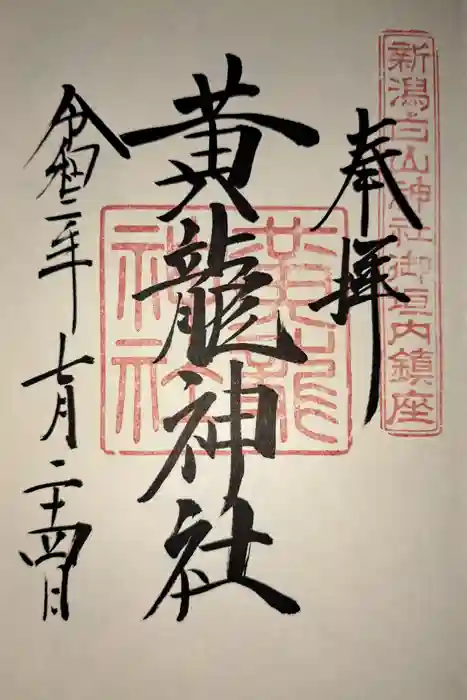 新潟白山神社御垣内鎮座
奉拝
黄龍神社
黄龍神社
令和二年七月二十四日